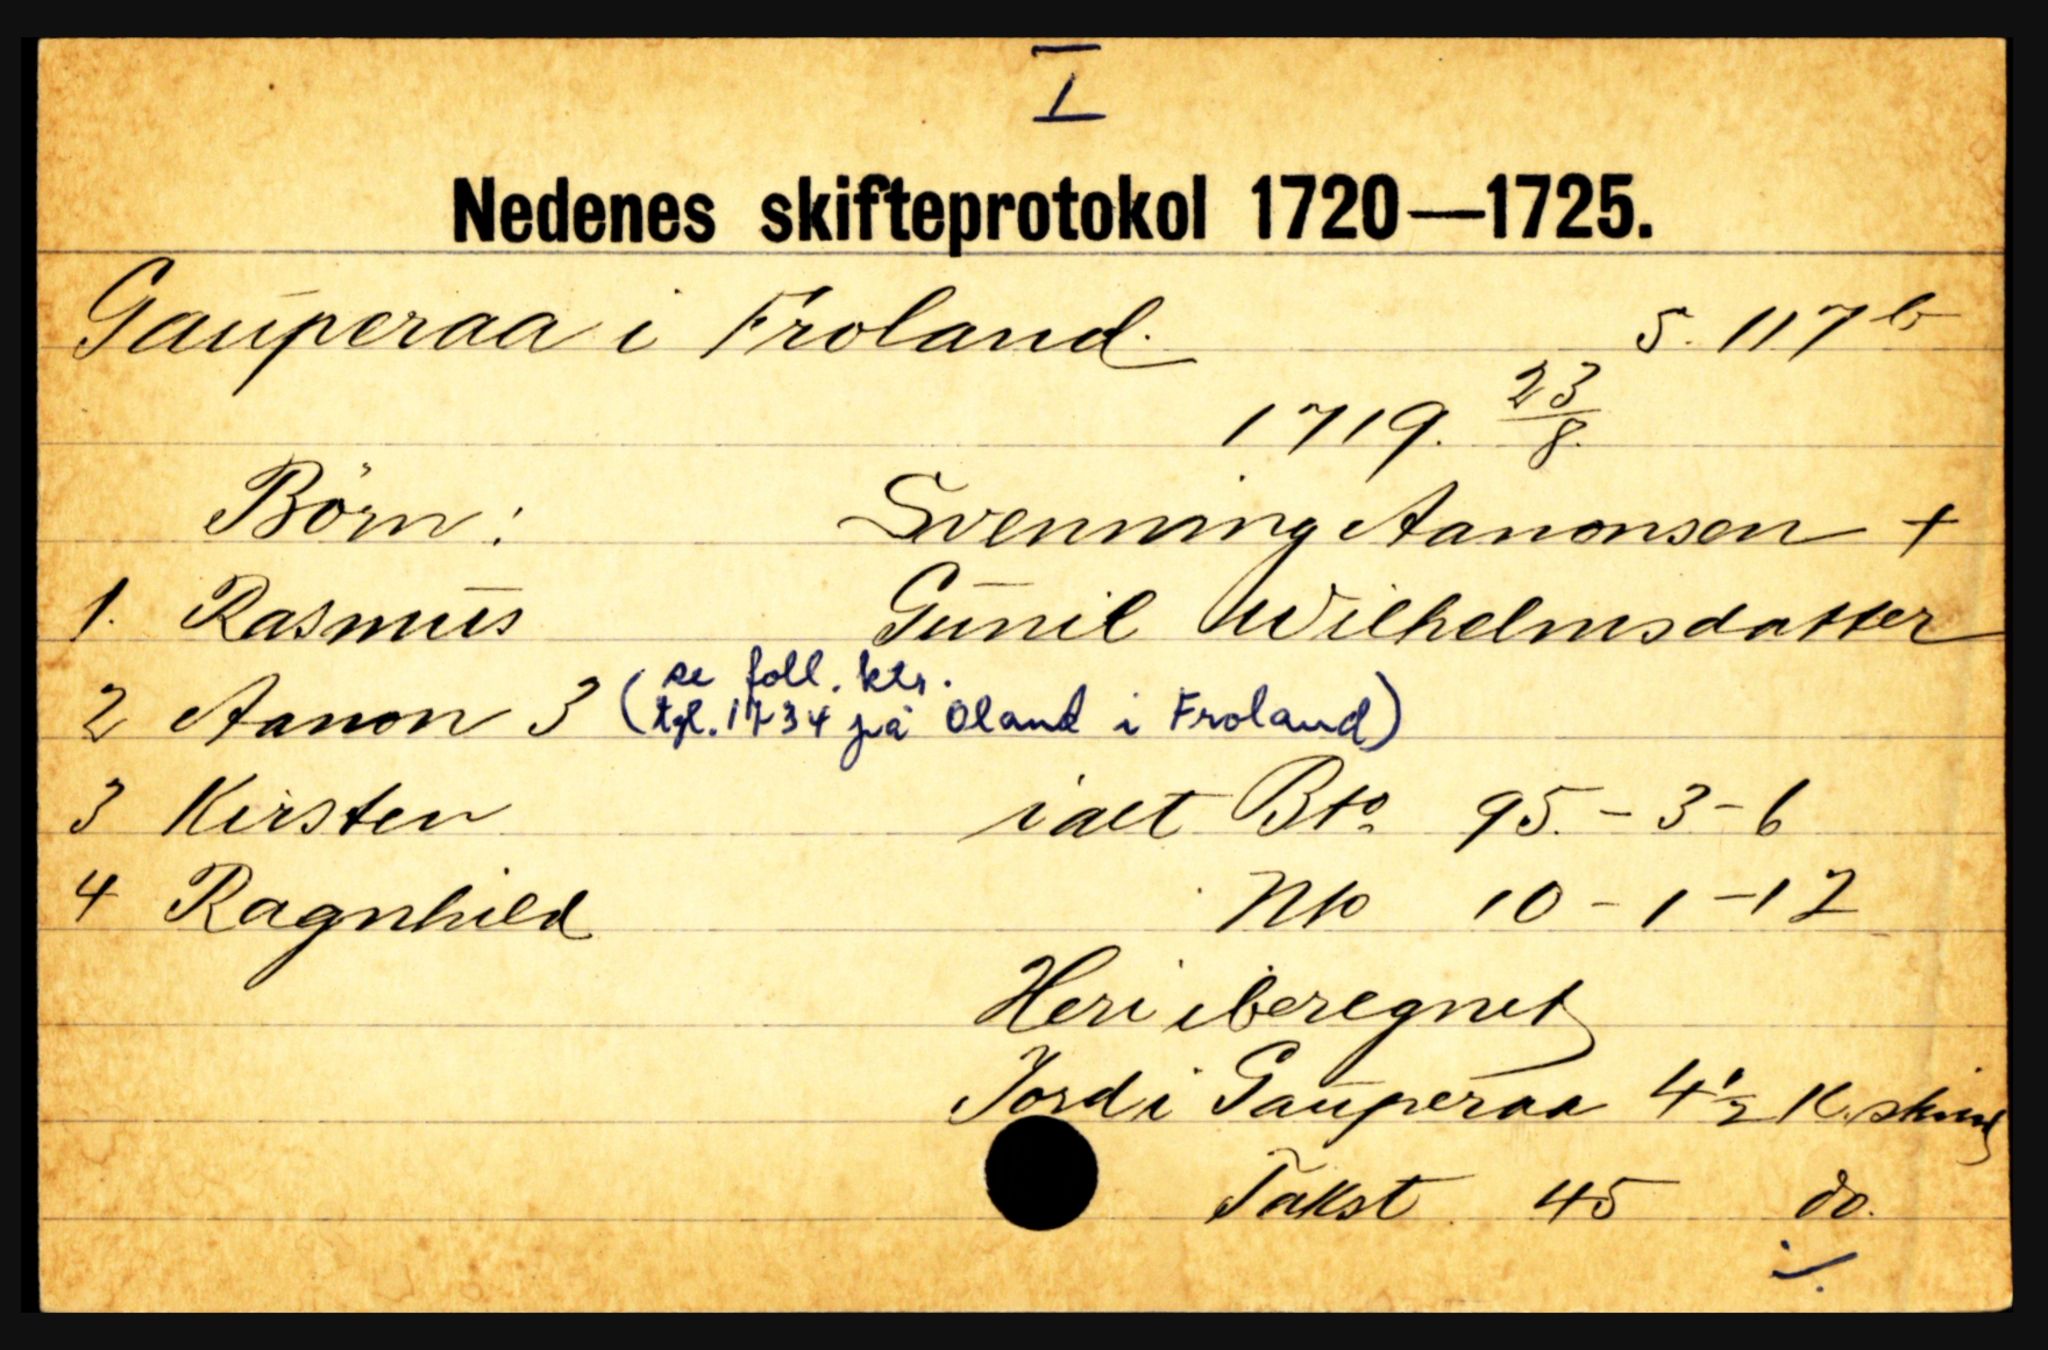 I
Nedenes skifteprotokol 1720—1725.
Gauperaa i Froland. S. 117 b
1719. 23/8.
Börn: Svenning Aanonsen +
1. Rasmus Gunil Wilhelmsdatter
2 Aanon 3 (se foll. ktr.
tgl. 1734 på Oland i Froland)
3 Kirsten ialt Bto 95. - 3 - 6
4 Ragnhild Nto 10 - 1 - 12
Heri iberegnet
Jord i Gauperaa 4 1/2 K. skind
Takst 45 do.